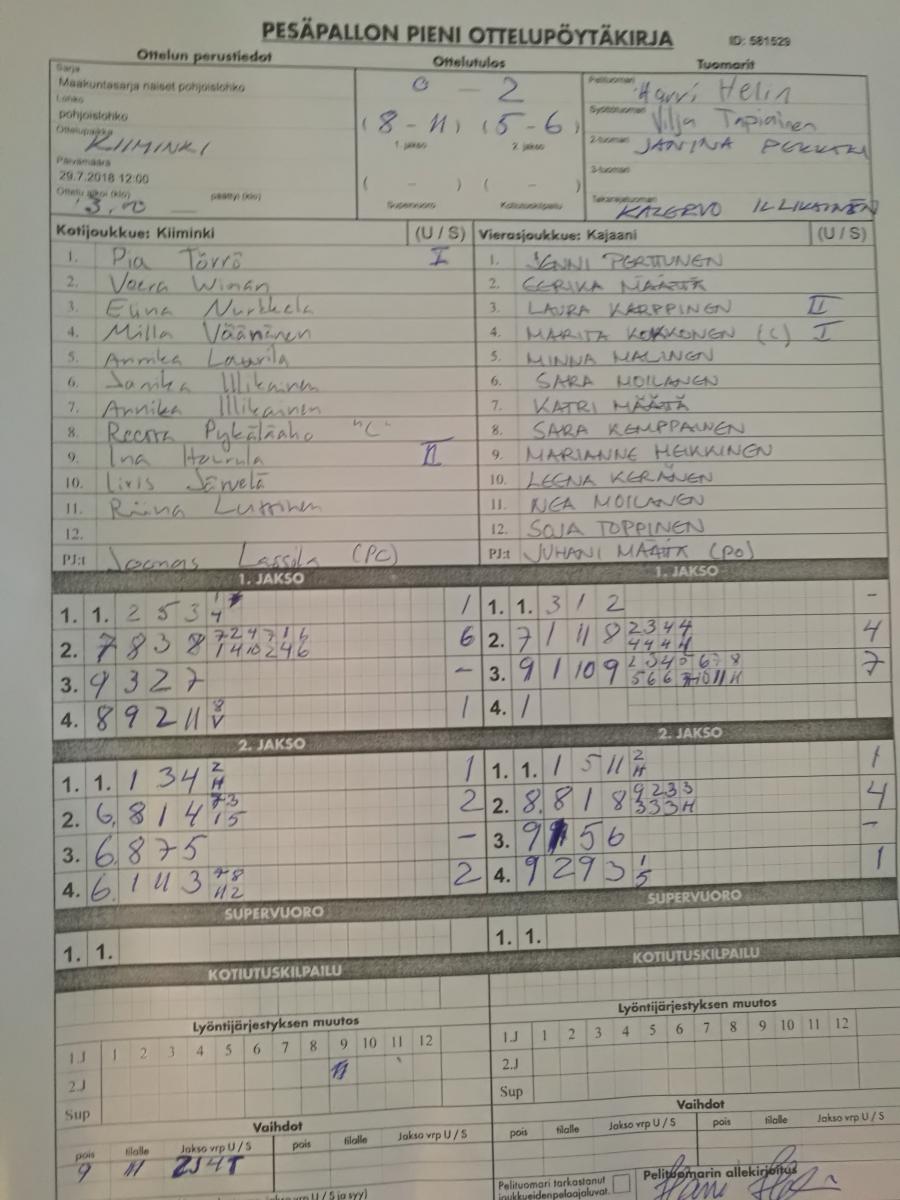 PESÄPALLON PIENI OTTELUPÖYTÄKIRJA
ID: 581529
Ottelun perustiedot Ottelutulos Tuomarit
Sarja
Maakuntasarja naiset pohjoislohko
Lohko
pohjoislohko
Ottelupaikka
KIIMINKI
Päivämäärä
29.7.2018 12:00
Ottelu alkoi (klo) päättyi (klo)
0 - 2
(8 - 11) (5 - 6)
1. jakso 2. jakso
( - ) ( - )
Supervuoro Kotiutuskilpailu
Pelituomari Harri Helin
Syöttötuomari Vilja Tapiainen
2-tuomari JANINA
3-tuomari
Takarajatuomari ILLIKAINEN
Kotijoukkue: Kiiminki (U / S)
1. Pia Törrö I
2. Veera
3. Elina Nurkkala
4. Milla Väänänen
5. Annika Laurila
6. Janika Illikainen
7. Annika Illikainen
8. Reetta Pykäläaho "C"
9. Ina II
10. Iiris Järvelä
11. Riina
12.
PJ:t Joonas Lassila (PC)
Vierasjoukkue: Kajaani (U / S)
1. JENNI PERTTUNEN
2. EERIKA MÄÄTTÄ
3. LAURA KARPPINEN II
4. MARITA KOKKONEN (C) I
5. MINNA MALINEN
6. SARA MOILANEN
7. KATRI MÄÄTTÄ
8. SARA KEMPPAINEN
9. MARIANNE HEIKKINEN
10. LEENA KERÄNEN
11. NEA MOILANEN
12. SOJA TOPPINEN
PJ:t JUHANI MÄÄTTÄ (PO)
1. JAKSO
1. 1. 2 5 3 1
2. 7 8 3 8 6
3. 9 3 2 7 -
4. 8 9 2 11 8 V 1
1. JAKSO
1. 1. 3 1 2 -
2. 7 1 11 8 2 3 4 4 4
4 4 4 4
3. 9 1 10 9 7
4. 1
2. JAKSO
1. 1. 1 3 4 2 H 1
2. 6. 8 1 4 2
3. 6. 8 7 5 -
4. 6. 1 11 3 2
2. JAKSO
1. 1. 1 5 11 2 H 1
2. 8. 8 1 8 9 2 3 3 4
3 3 3 H
3. 9 5 6 -
4. 9 2 9 3 1 5 1
SUPERVUORO
1. 1.
SUPERVUORO
1. 1.
KOTIUTUSKILPAILU
KOTIUTUSKILPAILU
Lyöntijärjestyksen muutos
1.J 1 2 3 4 5 6 7 8 9 10 11 12
2.J 11
Sup
Lyöntijärjestyksen muutos
1.J 1 2 3 4 5 6 7 8 9 10 11 12
2.J
Sup
Vaihdot
pois tilalle Jakso vrp U / S pois tilalle Jakso vrp U / S
9 11 2J4T
Vaihdot
pois tilalle Jakso vrp U / S pois tilalle Jakso vrp U / S
Pelituomari tarkastanut
joukkueiden pelaajaluvat.
Pelituomarin allekirjoitus